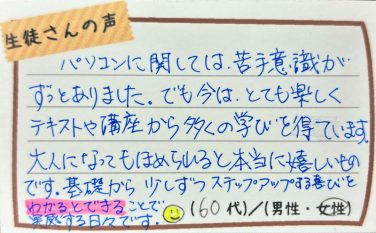 生徒さんの声
パソコンに関しては、苦手意識が
ずっとありました。でも今は、とても楽しく
テキストや講座から多くの学びを得ています。
大人になってもほめられると本当に嬉しいもの
です。基礎から少しずつステップアップする喜びを
わかるとできることで
実感する日々です。
(60代)/(男性・女性)